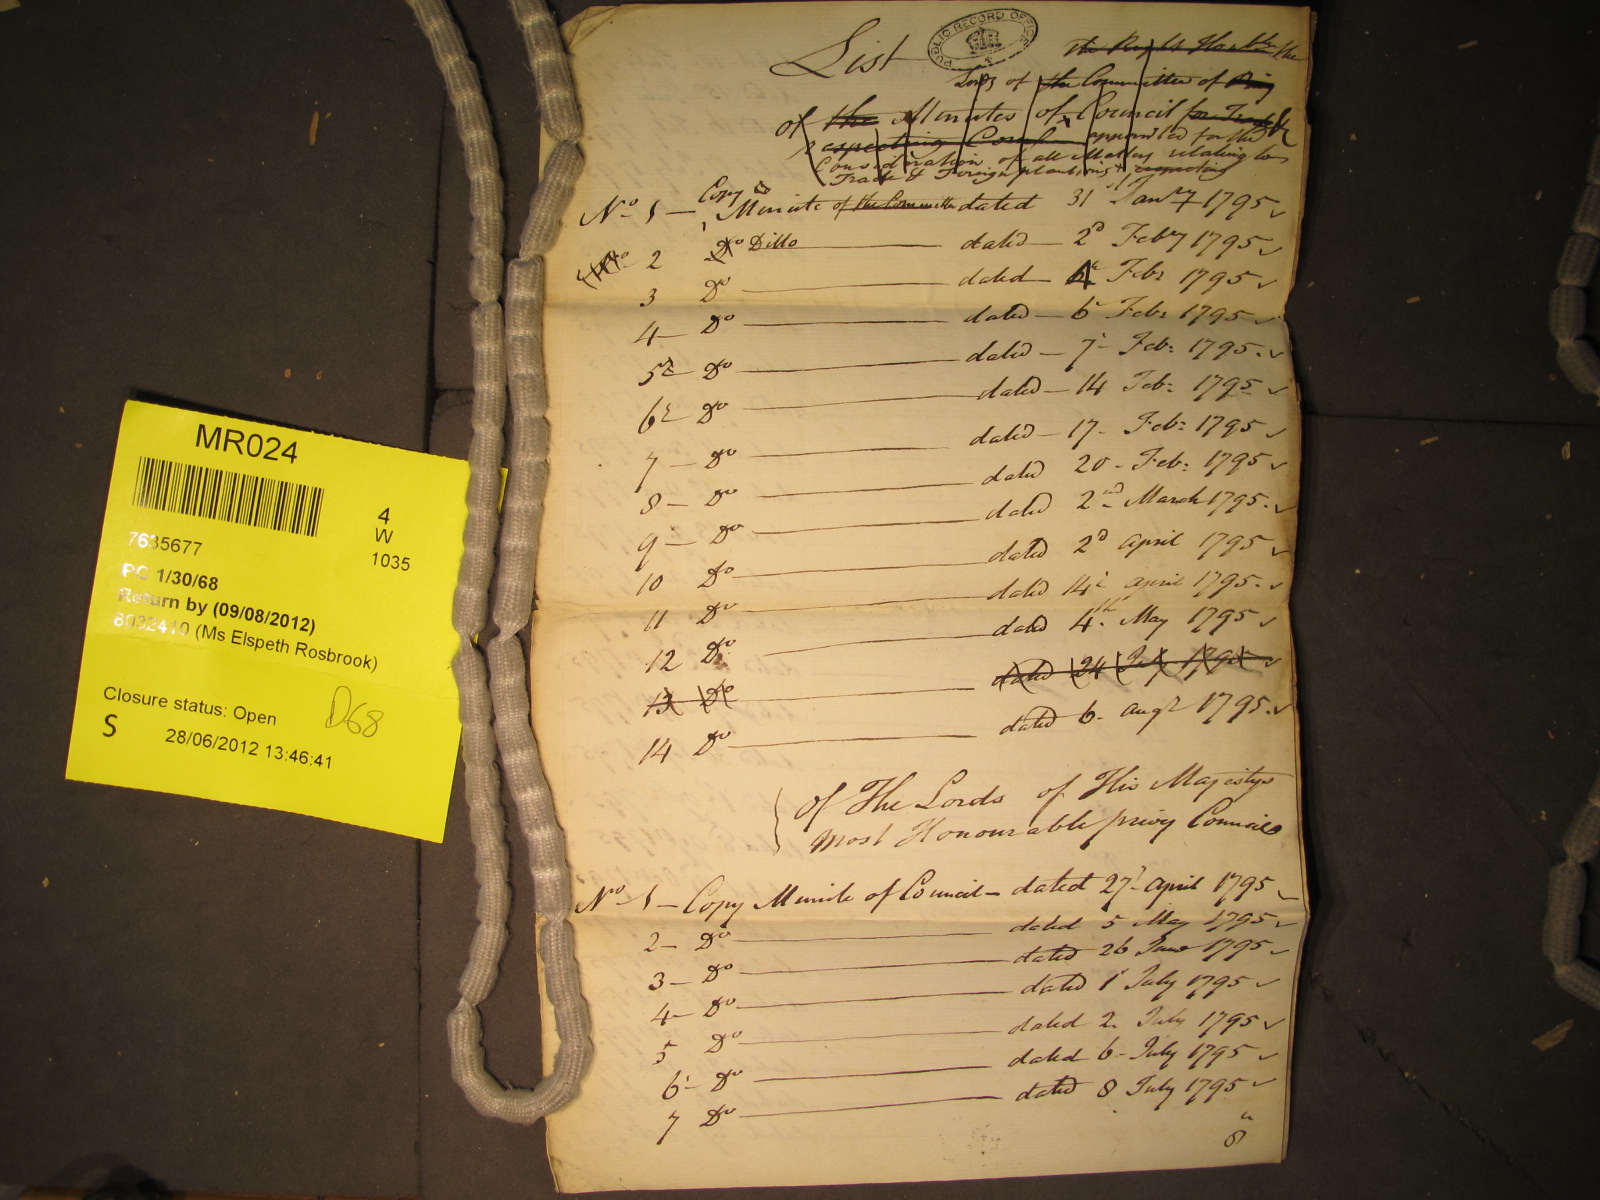 MR024
4
W
1035
7635677
PC 1/30/68
Return by (09/08/2012)
8032410 (Ms Elspeth Rosbrook)
Closure status: Open
D68
S
28/06/2012 13:46:41
PUBLIC RECORD OFFICE
List
the Right Honble the
Lords of the Committee of Privy
of the Minutes of Council for Trade
respecting Corn appointed for the
Consideration of all Matters relating to
Trade & Foreign plantations
Copy
No 1 — Minute of the Committee dated 31 Jany 1795
No 2 Do Ditto dated — 2d Feby 1795
3 Do dated — 4 Feb: 1795
4 — Do dated — 6 Feb: 1795
5 — Do dated — 7 Feb: 1795
6 Do dated — 14 Feb: 1795
7 — Do dated — 17 Feb: 1795
8 — Do dated 20 Feb: 1795
9 — Do dated 2nd March 1795
10 Do dated 2d April 1795
11 Do dated 14 April 1795
12 Do dated 4th May 1795
13 Do dated 24 July 1795
14 Do dated 6 Augt 1795
Of The Lords of His Majestys
Most Honourable privy Council
No 1 — Copy Minute of Council — dated 27 April 1795
2 — Do dated 5 May 1795
3 — Do dated 26 June 1795
4 — Do dated 1 July 1795
5 Do dated 2 July 1795
6 — Do dated 6 July 1795
7 Do dated 8 July 1795